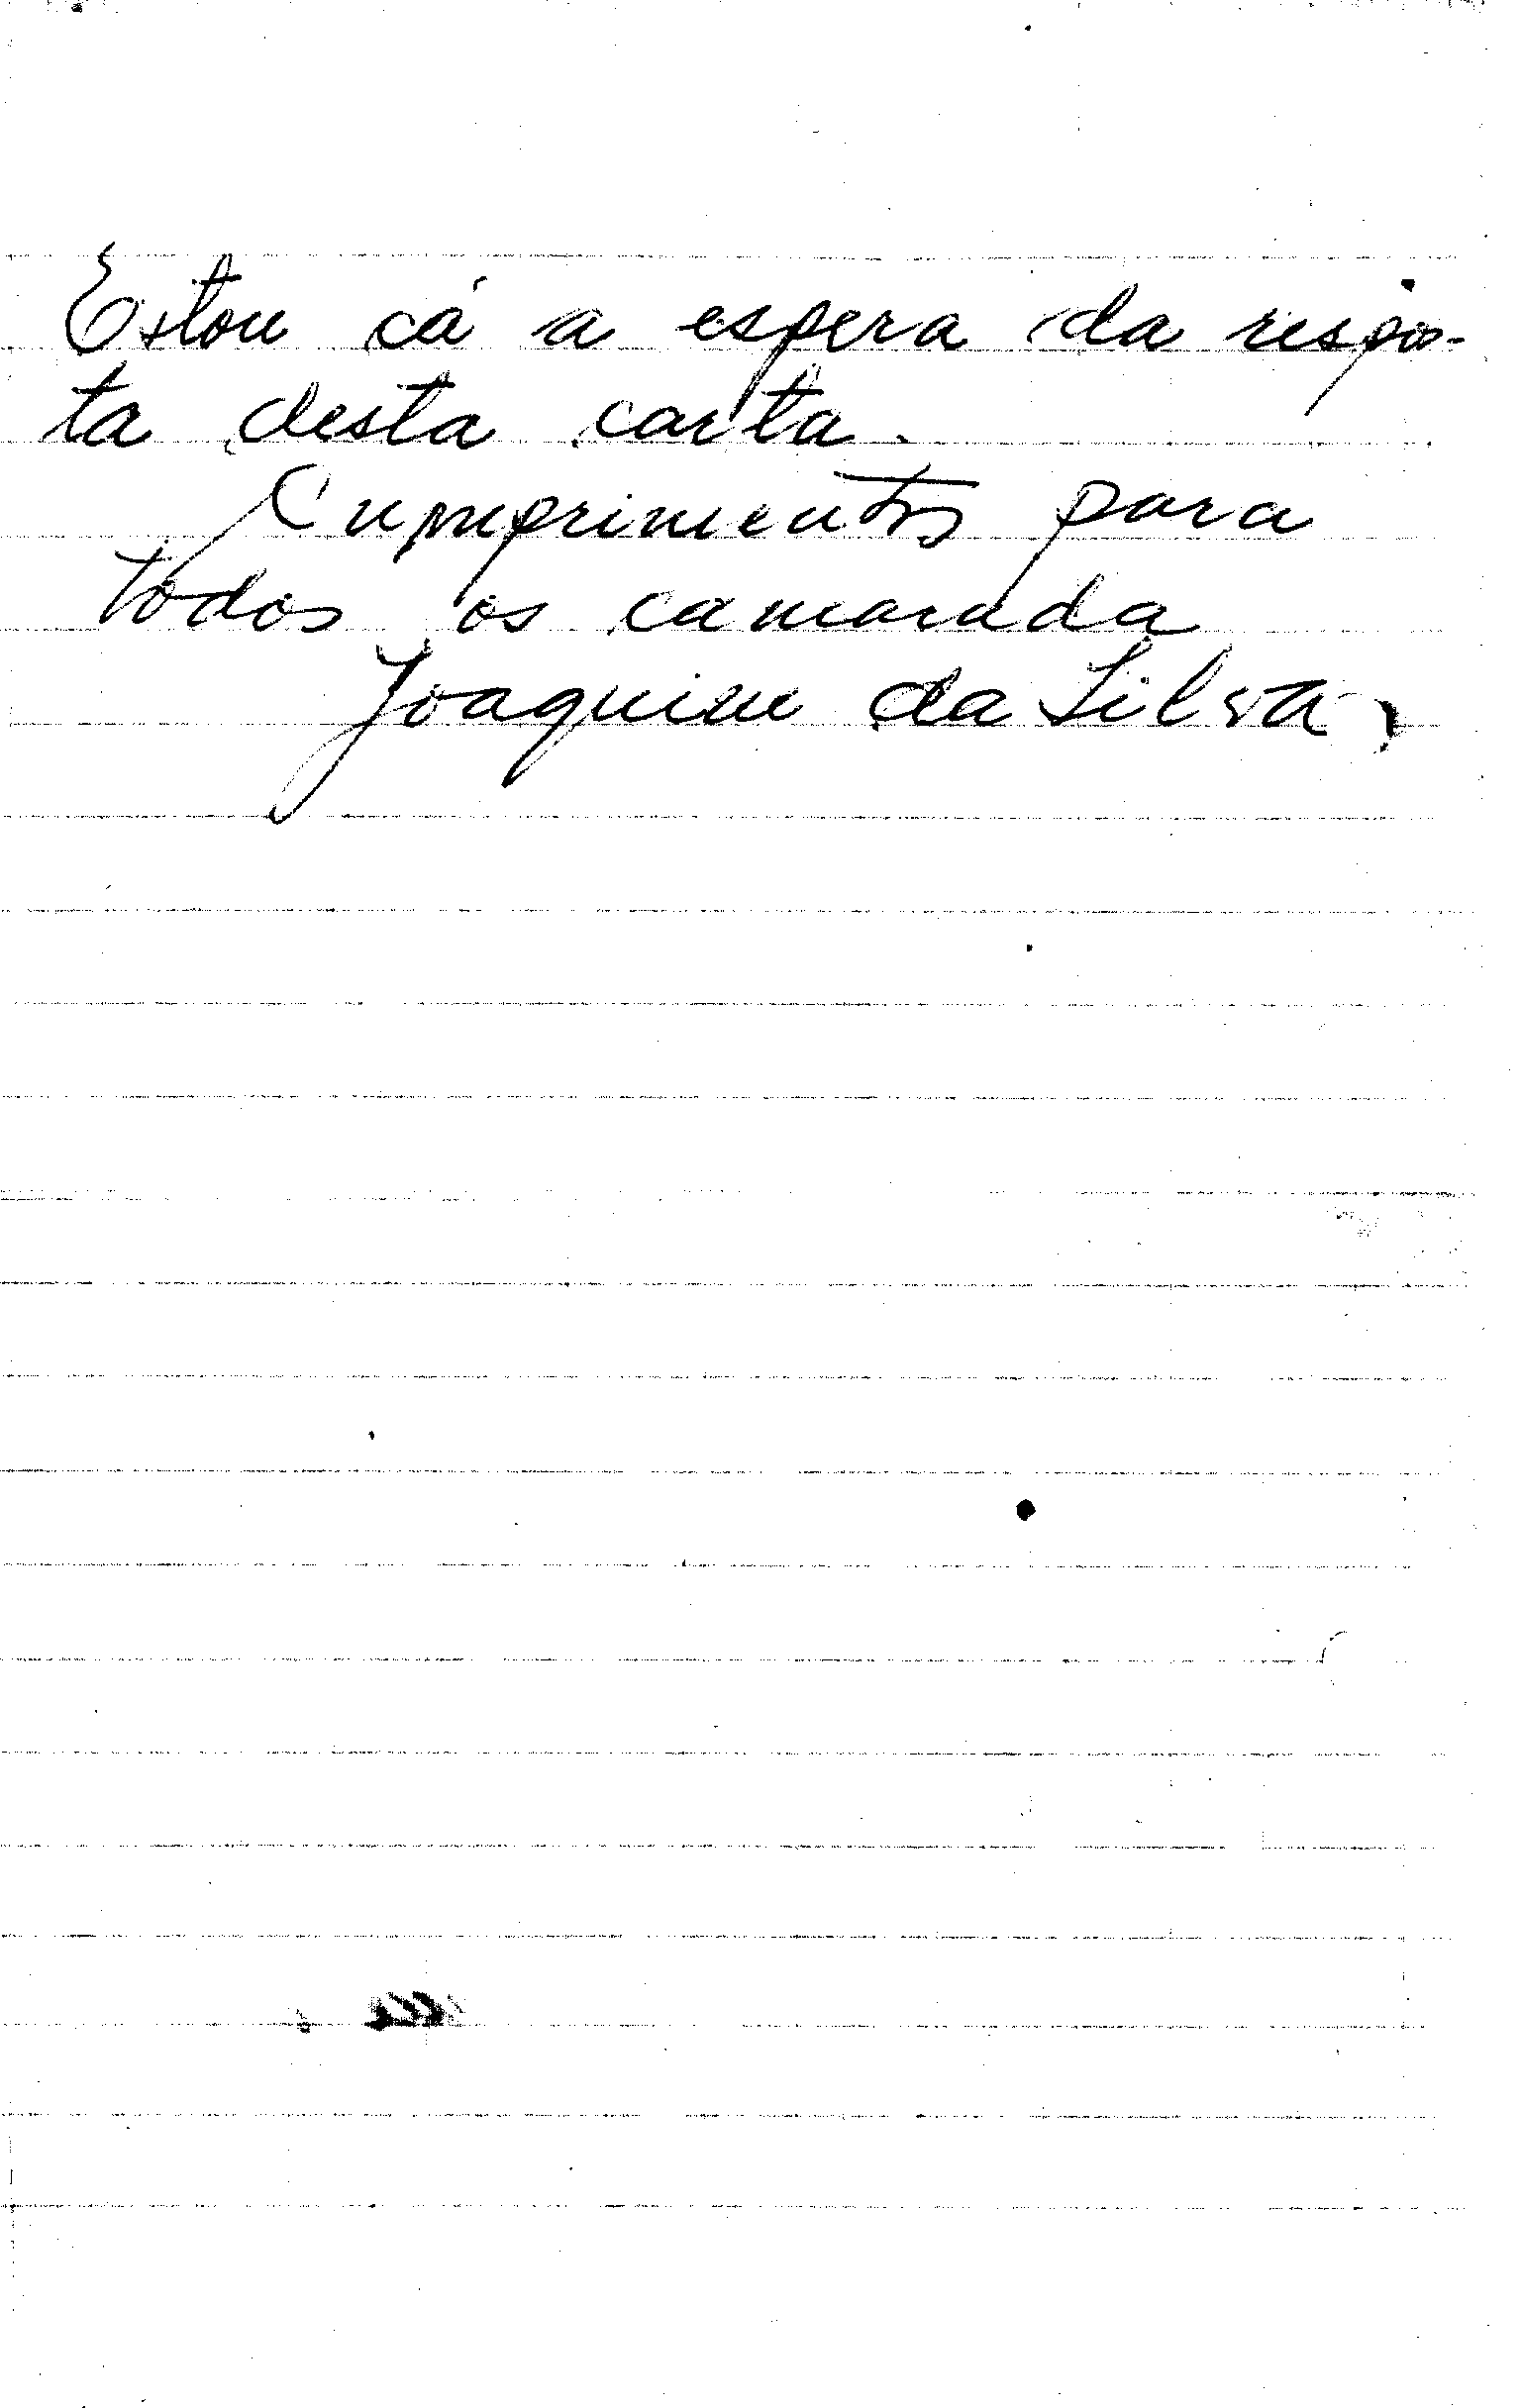 Estou cá a espera da respos-
ta desta carta.
Cumprimentos para
todos os camarada
Joaquim da Silva,